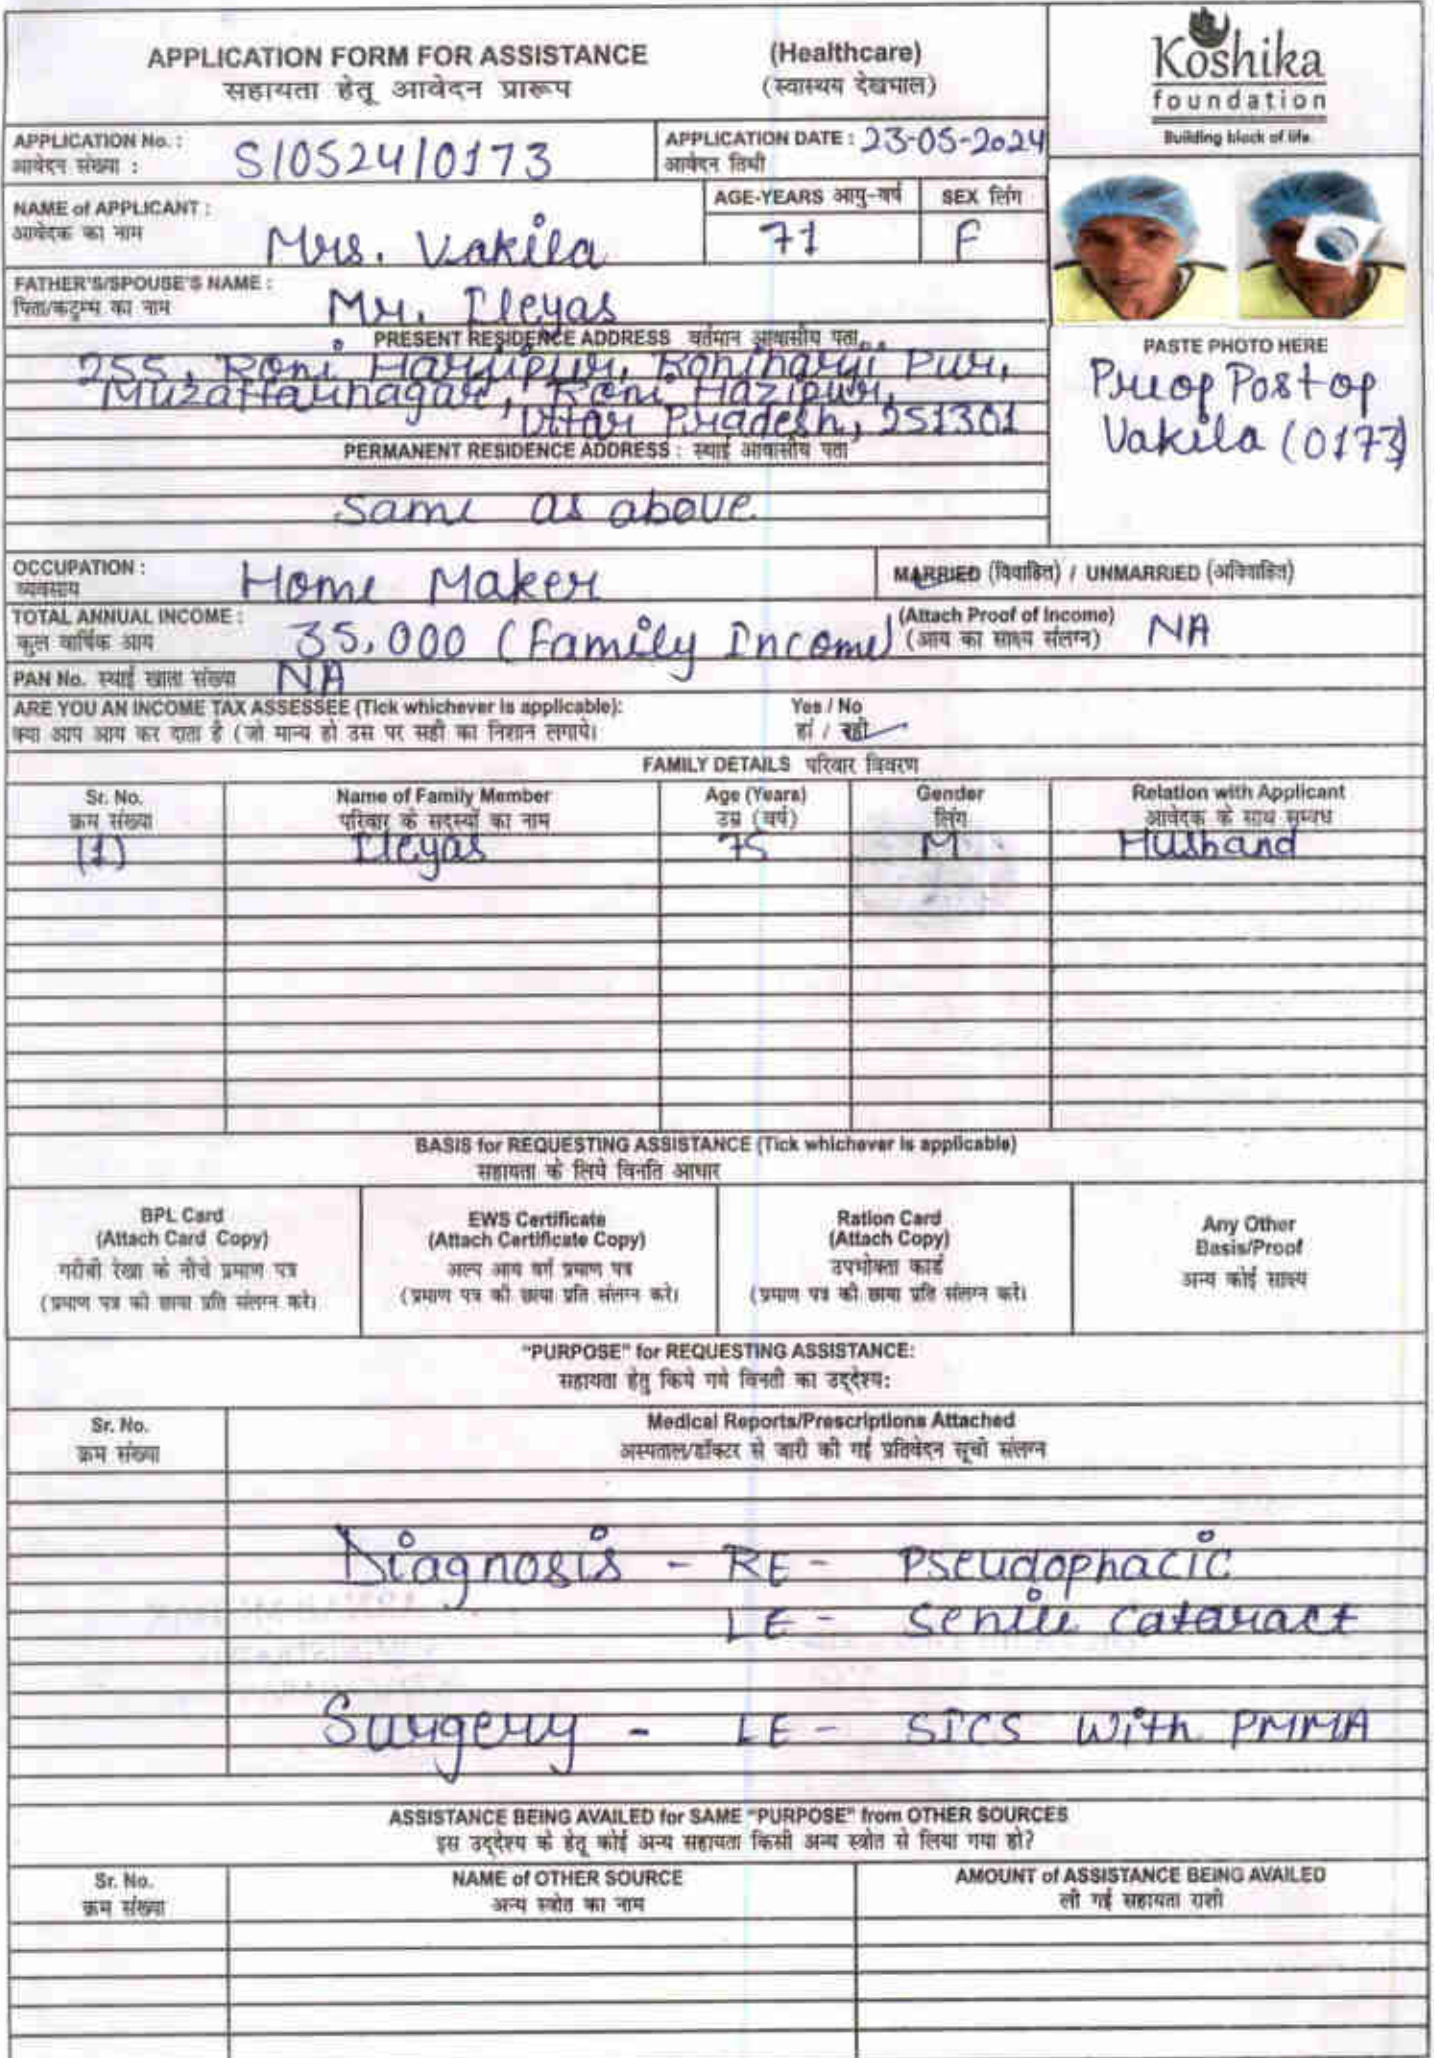 APPLICATION FORM FOR ASSISTANCE (Healthcare)
सहायता हेतू आवेदन प्रारूप (स्वास्थय देखभाल)
Koshika
foundation
Building block of life.
APPLICATION No. : S/0524/0173
आवेदन संख्या :
APPLICATION DATE : 23-05-2024
आवेदन तिथी
NAME of APPLICANT : Mrs. Vakila
आवेदक का नाम
AGE-YEARS आयु-वर्ष 71
SEX लिंग F
FATHER'S/SPOUSE'S NAME : Mr. Ileyas
पिता/कटुम्ब का नाम
PRESENT RESIDENCE ADDRESS वर्तमान आवासीय पता
255, Roni Harjipur, Roniharji Pur,
Muzaffarnagar, Roni Hazipur,
Uttar Pradesh, 251301
PERMANENT RESIDENCE ADDRESS : स्थाई आवासीय पता
Same as above
PASTE PHOTO HERE
Preop Postop
Vakila (0173)
OCCUPATION : Home Maker
व्यवसाय
MARRIED (विवाहित) / UNMARRIED (अविवाहित)
TOTAL ANNUAL INCOME : 35,000 (Family Income)
कुल वार्षिक आय
(Attach Proof of Income) NA
(आय का साक्ष्य संलग्न)
PAN No. स्थाई खाता संख्या NA
ARE YOU AN INCOME TAX ASSESSEE (Tick whichever is applicable): Yes / No
क्या आप आय कर दाता है (जो मान्य हो उस पर सही का निशान लगाये। हां /
FAMILY DETAILS परिवार विवरण
Sr. No. Name of Family Member Age (Years) Gender Relation with Applicant
क्रम संख्या परिवार के सदस्यों का नाम उम्र (वर्ष) लिंग आवेदक के साथ सम्बंध
(1) Ileyas 75 M Husband
BASIS for REQUESTING ASSISTANCE (Tick whichever is applicable)
सहायता के लिये विनति आधार
BPL Card
(Attach Card Copy)
गरीबी रेखा के नीचे प्रमाण पत्र
(प्रमाण पत्र की छाया प्रति संलग्न करे।
EWS Certificate
(Attach Certificate Copy)
अल्प आय वर्ग प्रमाण पत्र
(प्रमाण पत्र की छाया प्रति संलग्न करे।
Ration Card
(Attach Copy)
उपभोक्ता कार्ड
(प्रमाण पत्र की छाया प्रति संलग्न करे।
Any Other
Basis/Proof
अन्य कोई साक्ष्य
"PURPOSE" for REQUESTING ASSISTANCE:
सहायता हेतु किये गये विनती का उद्देश्य:
Sr. No. Medical Reports/Prescriptions Attached
क्रम संख्या अस्पताल/डॉक्टर से जारी की गई प्रतिवेदन सूची संलग्न
Diagnosis - RE - Pseudophacic
LE - Senile cataract
Surgery - LE - SICS with PMMA
ASSISTANCE BEING AVAILED for SAME "PURPOSE" from OTHER SOURCES
इस उद्देश्य के हेतु कोई अन्य सहायता किसी अन्य स्त्रोत से लिया गया हो?
Sr. No. NAME of OTHER SOURCE AMOUNT of ASSISTANCE BEING AVAILED
क्रम संख्या अन्य स्त्रोत का नाम ली गई सहायता राशी